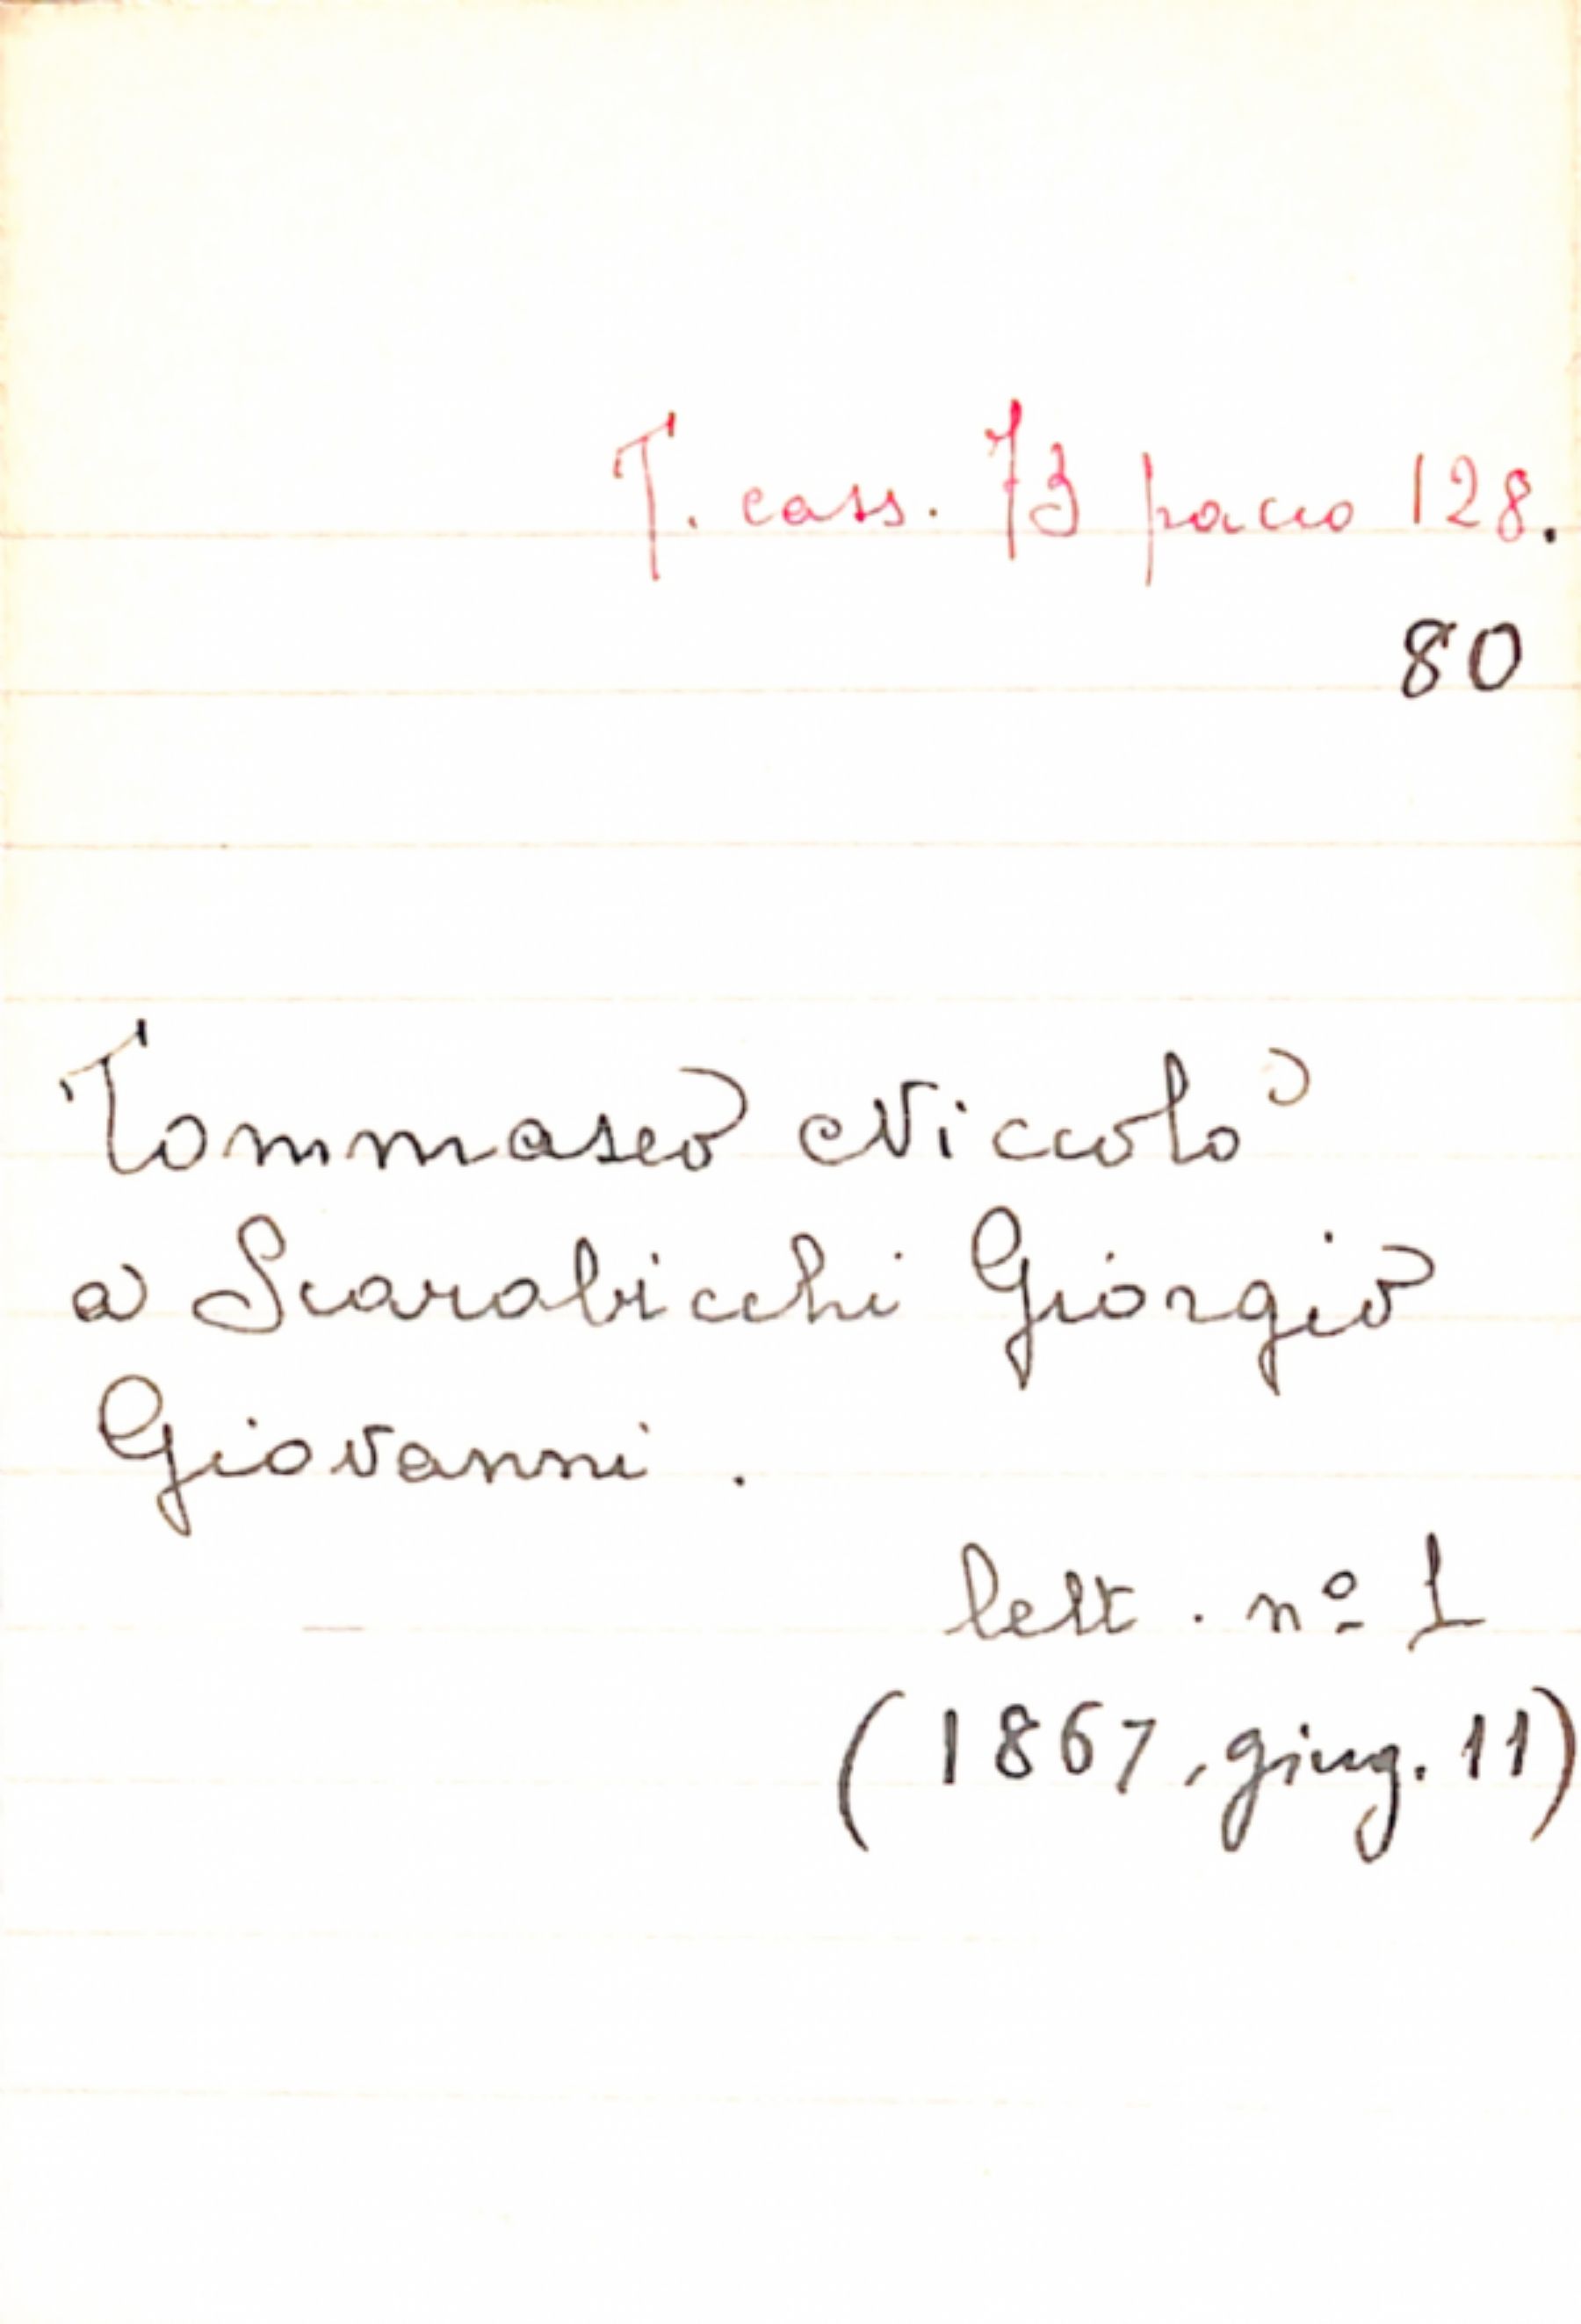 T. cass. 73 pacco 128.
80
Tommaseo Niccolò
a Scarabicchi Giorgio
Giovanni.
lett. nº 1
(1867, giug. 11)